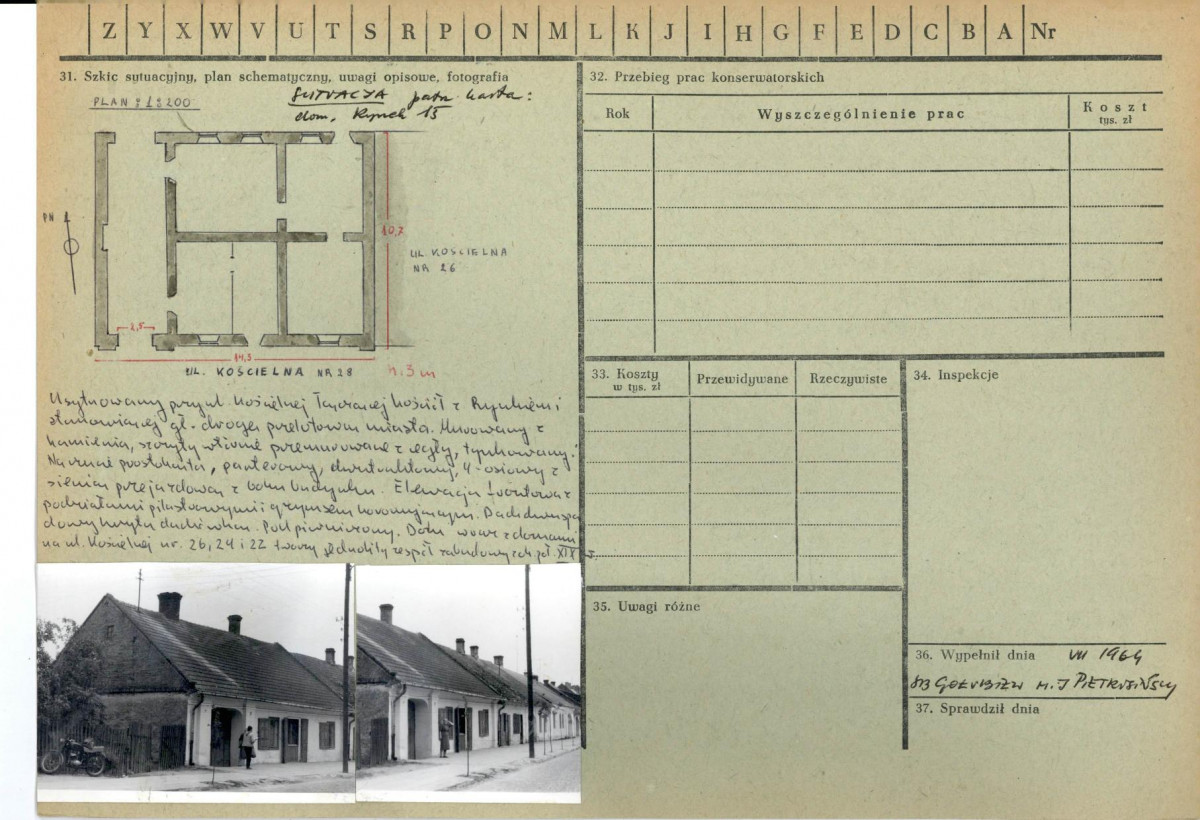 Z Y X W V U T S R P O N M L K J I H G F E D C B A Nr
31. Szkic sytuacyjny, plan schematyczny, uwagi opisowe, fotografia
PLAN 1:200
SYTUACJA patrz karta:
dom, Rynek 15
PN
10,7
UL. KOŚCIELNA
NR 26
2,5
14,5
UL. KOŚCIELNA NR 28
h. 3 m
Usytuowany przy ul. Kościelnej łączącej kościół z Rynkiem i
stanowiącej gł. drogę przelotową miasta. Murowany z
kamienia, szczyty wtórnie przemurowane z cegły, tynkowany.
Na rzucie prostokąta, parterowy, dwutraktowy, 4-osiowy z
sienią przejazdową z boku budynku. Elewacja frontowa z
podziałami pilastrowymi i gzymsem koronującym. Dach dwuspa
dowy kryty dachówką. Podpiwniczony. Dom wraz z domami
na ul. Kościelnej nr. 26, 24 i 22 tworzy jednolity zespół zabudowy z poł. XIX w.
32. Przebieg prac konserwatorskich
Rok
Wyszczególnienie prac
Koszt
tys. zł
33. Koszty
w tys. zł
Przewidywane
Rzeczywiste
34. Inspekcje
35. Uwagi różne
36. Wypełnił dnia VII 1964
M. J PIETRUSIŃSCY
37. Sprawdził dnia